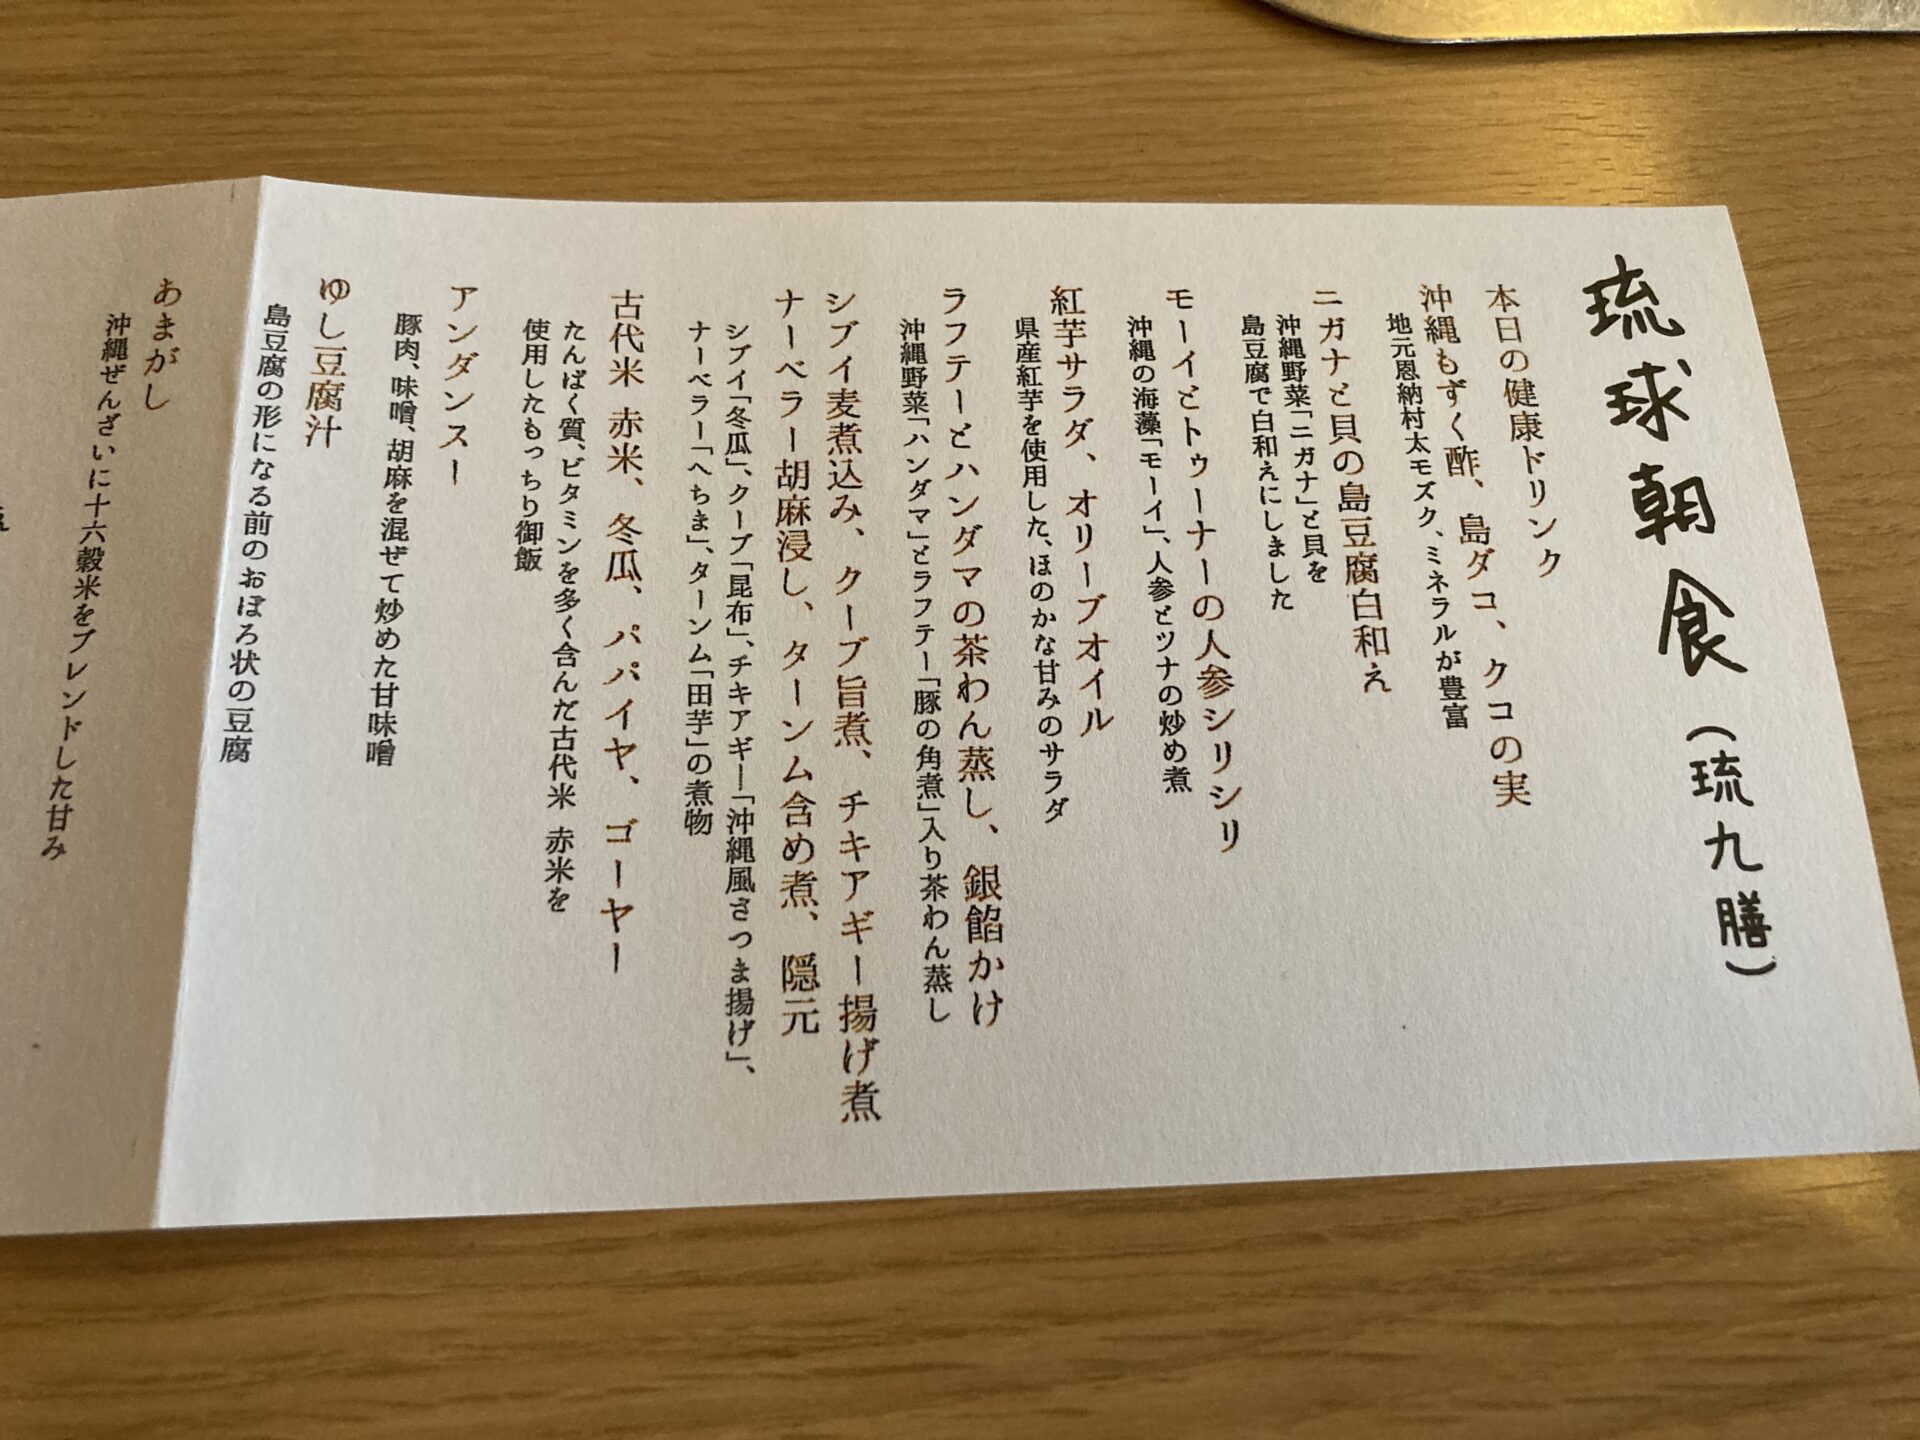 琉球朝食(琉九膳)
本日の健康ドリンク
沖縄もずく酢、島ダコ、クコの実
地元恩納村太モズク、ミネラルが豊富
ニガナと貝の島豆腐白和え
沖縄野菜「ニガナ」と貝を
島豆腐で白和えにしました
モーイとトゥーナーの人参シリシリ
沖縄の海藻「モーイ」、人参とツナの炒め煮
紅芋サラダ、オリーブオイル
県産紅芋を使用した、ほのかな甘みのサラダ
ラフテーとハンダマの茶わん蒸し、銀餡かけ
沖縄野菜「ハンダマ」とラフテー「豚の角煮」入り茶わん蒸し
シブイ麦煮込み、クーブ旨煮、チキアギー揚げ煮
ナーベラー胡麻浸し、ターンム含め煮、隠元
シブイ「冬瓜」、クーブ「昆布」、チキアギー「沖縄風さつま揚げ」、
ナーベラー「へちま」、ターンム「田芋」の煮物
古代米 赤米、冬瓜、パパイヤ、ゴーヤー
たんぱく質、ビタミンを多く含んだ古代米 赤米を
使用したもっちり御飯
アンダンスー
豚肉、味噌、胡麻を混ぜて炒めた甘味噌
ゆし豆腐汁
島豆腐の形になる前のおぼろ状の豆腐
あまがし
沖縄ぜんざいに十六穀米をブレンドした甘み